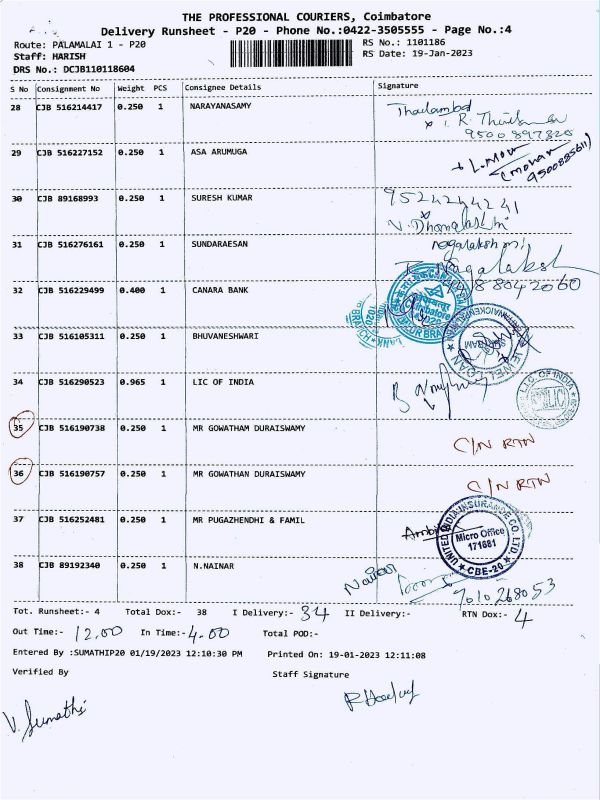 THE PROFESSIONAL COURIERS, Coimbatore
Delivery Runsheet - P20 - Phone No.:0422-3505555 - Page No.:4
Route: PALAMALAI 1 - P20
RS No.: 1101186
Staff: HARISH
RS Date: 19-Jan-2023
DRS No.: DCJB110118604
S No Consignment No Weight PCS Consignee Details Signature
28 CJB 516214417 0.250 1 NARAYANASAMY
9500897820
29 CJB 516227152 0.250 1 ASA ARUMUGA
L. Mohan
(Mohan
30 CJB 89168993 0.250 1 SURESH KUMAR
9524244241
V. Dhanalakshmi
31 CJB 516276161 0.250 1 SUNDARAESAN
nagalakshmi
32 CJB 516229499 0.400 1 CANARA BANK
33 CJB 516105311 0.250 1 BHUVANESHWARI
JEWEL LOAN
34 CJB 516290523 0.965 1 LIC OF INDIA
L.I.C. OF INDIA
35 CJB 516190738 0.250 1 MR GOWATHAM DURAISWAMY C/N RTN
36 CJB 516190757 0.250 1 MR GOWATHAN DURAISWAMY C/N RTN
37 CJB 516252481 0.250 1 MR PUGAZHENDHI & FAMIL
UNITED INDIA INSURANCE CO. LTD.
Micro Office
171681
CBE-20
38 CJB 89192340 0.250 1 N.NAINAR
Nainar
7010268053
Tot. Runsheet:- 4 Total Dox:- 38 I Delivery:- 34 II Delivery:- RTN Dox:- 4
Out Time:- 12.00 In Time:- 4.00 Total POD:-
Entered By :SUMATHIP20 01/19/2023 12:10:30 PM Printed On: 19-01-2023 12:11:08
Verified By Staff Signature
V. Sumathi